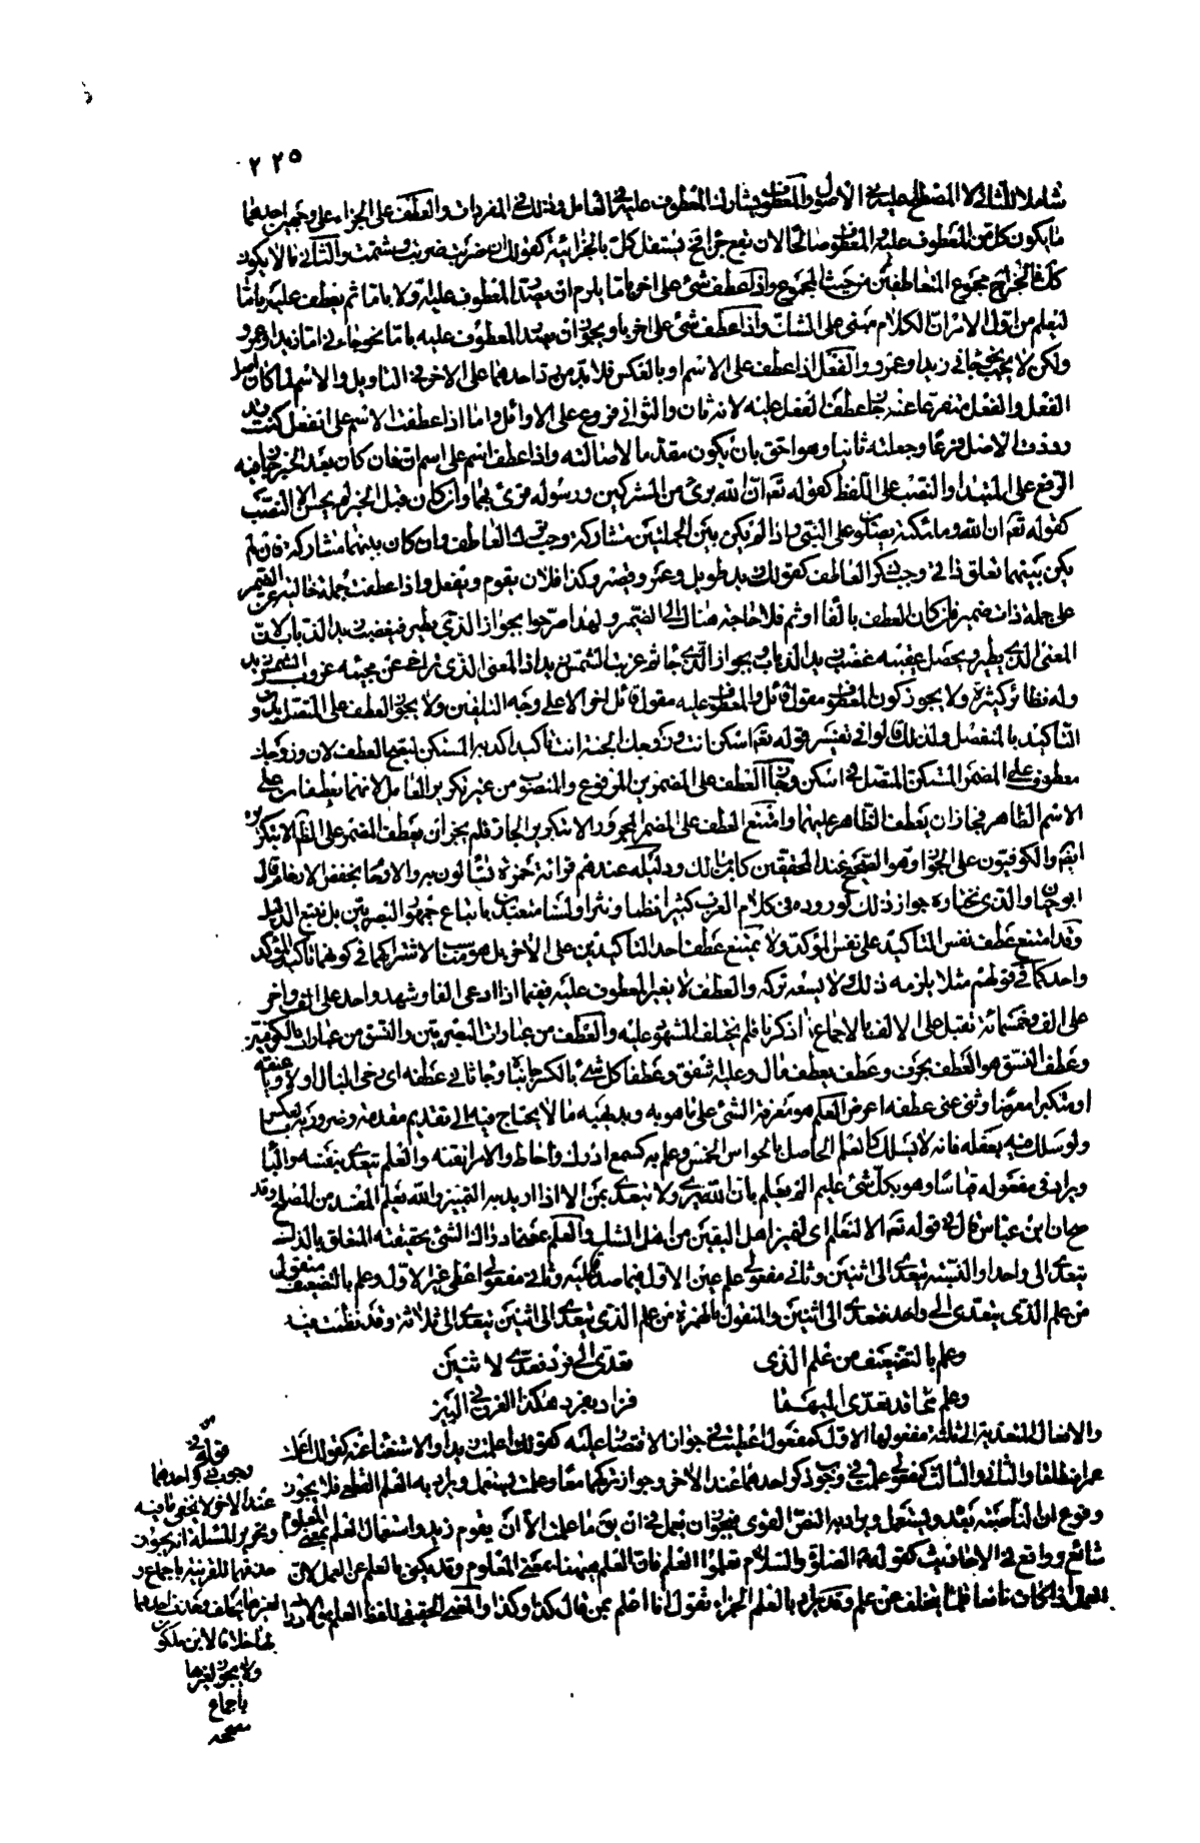 ٢٢٥
شاملا للثاني لا المصطلح عليه في الأصول والمعطوف يشارك المعطوف عليه في العامل وذلك في المفردات والعطف على الجزاء على وجهين احدهما
ما يكون كل من المعطوف عليه والمعطوف صالحا لان يقع جزاء فح يستقل كل بالجزائية كقولك ان ضربت ضربت وشتمت والثاني ما لا يكون
كك فالجزاء ح مجموع المتعاطفين من حيث المجموع واذا عطف شئ على اخر باما يلزم ان يصدر المعطوف عليه اولا باما ثم يعطف عليه باما
ليعلم من اول الامر ان الكلام مبني على الشك واذا عطف شئ على اخر باو يجوز ان يصدر المعطوف عليه باما نحو جاءني اما زيد او عمرو
ولكن لا يجب نحو جاءني زيد او عمرو والفعل اذا عطف على الاسم او بالعكس فلا بد من رد احدهما على الاخر في التاويل والاسم لما كان اصل
الفعل والفعل متفرعا عنه جاز عطف الفعل عليه لانه ثان والثواني فروع على الاوائل واما اذا عطفت الاسم على الفعل كنت قد
رددت الاصل فرعا وجعلته ثانيا وهو احق بان يكون مقدما لاصالته واذا عطف اسم على اسم ان فان كان بعد الخبر جاز فيه
الرفع على المبتدا والنصب على اللفظ كقوله تعه ان الله برئ من المشركين ورسوله قرئ بهما وان كان قبل الخبر لم يجز الا النصب
كقوله تعه ان الله وملئكته يصلون على النبي واذا لم يكن بين الجملتين مشاركة وجب ترك العاطف وان كان بينهما مشاركة فان لم
يكن بينهما تعلق ذاتي وجب ذكر العاطف كقولك زيد طويل وعمرو قصير وكذا فلان يقوم ويفعل واذا عطفت جملة خالية عن الضمير
على جملة ذات ضمير فان كان العطف بالفا او ثم فلا حاجة هناك الى الضمير ولهذا صرحوا بجواز الذي يطير فيغضب زيد الذباب لان
المعنى الذي يطير ويحصل عقيبه غضب زيد الذباب وبجواز الذي جاء ثم غربت الشمس زيد اذ المعنى الذي تراخى عن مجيئه غروب الشمس زيد
وله نظائر كثيرة ولا يجوز كون المعطوف مقول قائل والمعطوف عليه مقول قائل اخر الا على وجه التلقين ولا يجوز العطف على المتصل بدون
التاكيد بالمنفصل ولذلك قالوا في تفسير قوله تعه اسكن انت وزوجك الجنة انت تاكيد اكد به المستكن ليصح العطف لان وزوجك
معطوف على المضمر المستكن المتصل في اسكن وجاز العطف على المضمرين المرفوع والمنصوب من غير تكرير العامل لانهما يعطفان على
الاسم الظاهر فجاز ان يعطف الظاهر عليهما وامتنع العطف على المضمر المجرور الا بتكرير الجار فلم يجز ان يعطف المضمر على الظاهر الا بتكريره
ايضا والكوفيون على الجواز وهو الصحيح عند المحققين كابن مالك ودليله عندهم قراءة حمزة تساءلون به والارحام بخفض الارحام قال
ابو حيان والذي نختاره جواز ذلك لوروده في كلام العرب كثيرا نظما ونثرا ولسنا متعبدين باتباع جمهور البصريين بل نتبع الدليل
وقد امتنع عطف نفس التاكيد على نفس المؤكد ولا يمتنع عطف احد التاكيدين على الاخر بل هو مناسب لاشتراكهما في كونهما تاكيدا لمؤكد
واحد كما في قولهم مثلا يلزمه ذلك ولا يسعه تركه والعطف لا يغير المعطوف عليه ففيما اذا ادعى الفا وشهد واحد على الف واخر
على الف وخمسمائة تقبل على الالف بالاجماع اذ كرنا فلم يختلف المشهود عليه والعطف من عبارات البصريين والنسق من عبارات الكوفيين
وعطف النسق هو العطف بحرف وعطف يعطف مال وعليه شفق وعطفا كل شئ بالكسر جانباه وجاء ثاني عطفه اي رخى البال او لاويا عنقه
او متكبرا معرضا وثنى عني عطفه اعرض العلم هو معرفة الشئ على ما هو به وبديهيه ما لا يحتاج فيه الى تقديم مقدمة وضروريه بالعكس
ولو سلك فيه بعقله فانه لا يسلك كالعلم الحاصل بالحواس الخمس وعلم به كسمع ادرك واحاط والامر اتقنه والعلم يتعدى بنفسه والبا
ويراد في مفعوله قياسا وهو بكل شئ عليم الم يعلم بان الله يرى ولا يتعدى بمن الا اذا اريد به التمييز والله يعلم المفسد من المصلح وقد
صح ان ابن عباس قال في قوله تعه الا لنعلم اي لنميز اهل اليقين من اهل الشك والعلم بمعنى ادراك الشئ بحقيقته المتعلق بالذات
يتعدى الى واحد او النسبة يتعدى الى اثنين وثاني مفعولي علم عين الاول فيما صدقا عليه وثاني مفعولي اعطى غير الاول وعلم بالتضعيف منقول
من علم الذي يتعدى الى واحد فتعدى الى اثنين والمنقول بالهمزة من علم الذي يتعدى الى اثنين يتعدى الى ثلاثة وقد نظمت فيه
وعلم بالتضعيف من علم الذي تعدى الى فرد فعدى لاثنين
وعلم مما قد تعدى اليهما فزاد بفرد هكذا الفرق في البين
والافعال المتعدية الى ثلثة مفعولها الاول كمفعول اعطيت في جواز الاقتصار عليه كقولك اعلمت زيدا والاستغناء عنه كقولك اعلمت
عمرا منطلقا والثاني والثالث كمفعولي علمت في وجوب ذكر احدهما عند الاخر وجواز تركهما معا وعلمت يستعمل ويراد به العلم القطعي فلا يجوز
وقوع ان الناصبة بعده ويستعمل ويراد به الظن القوي فيجوز ان يعمل في ان يق ما علمت الا ان يقوم زيد واستعمال العلم بمعنى المعلوم
شائع وواقع في الاحاديث كقوله عليه الصلوة والسلام تعلموا العلم فان العلم ههنا بمعنى المعلوم وقد يكنى بالعلم عن العمل لان
العمل اذا كان نافعا قلما يتخلف عن علم وقد يراد بالعلم الجزاء تقول انا اعلم بمن قال كذا وكذا والمعنى الحقيقي للفظ العلم هو الادراك
قوله في
وجوب ذكر احدهما
عند الاخر لا يخفى ما فيه
وتحرير المسئلة انه يجوز
حذفهما للقرينة باجماع و
لغيرها بخلاف وحذف احدهما
لها خلافا لابن ملكون
ولا يجوز لغيرها
باجماع
مصححه